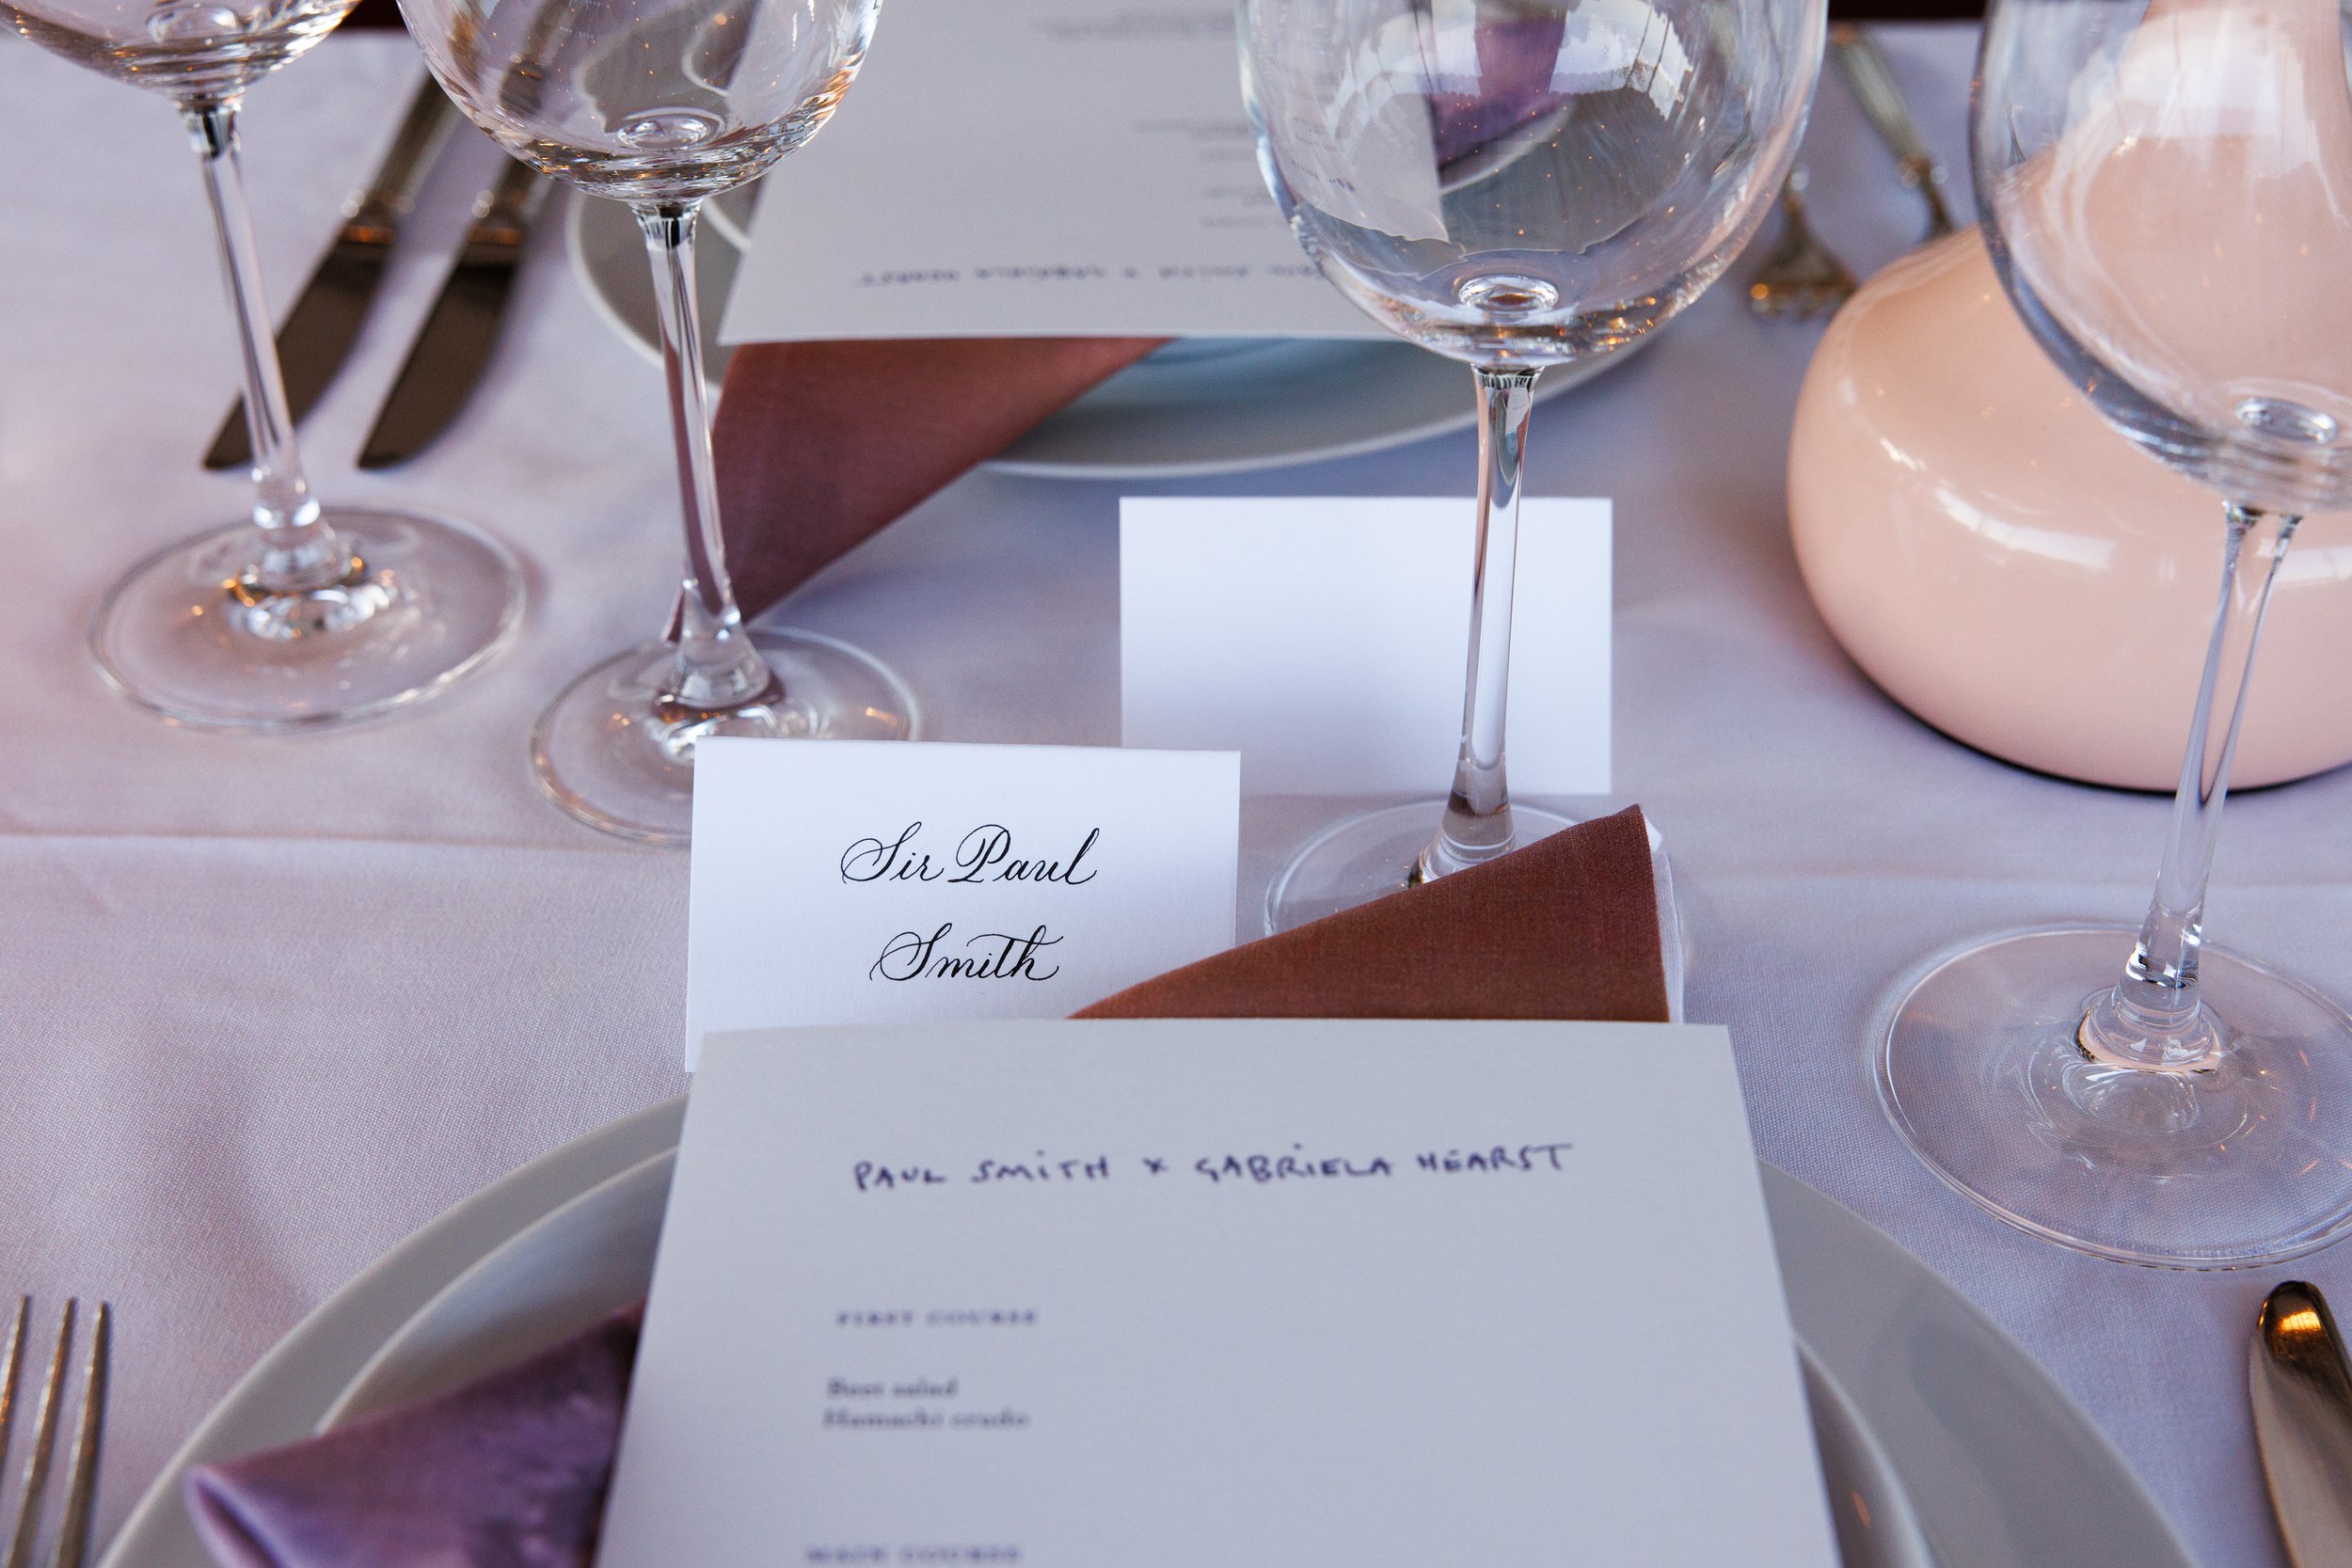 Sir Paul
Smith
PAUL SMITH x GABRIELA HEARST
FIRST COURSE
Beet salad
Hamachi crudo
MAIN COURSE
PAUL SMITH x GABRIELA HEARST